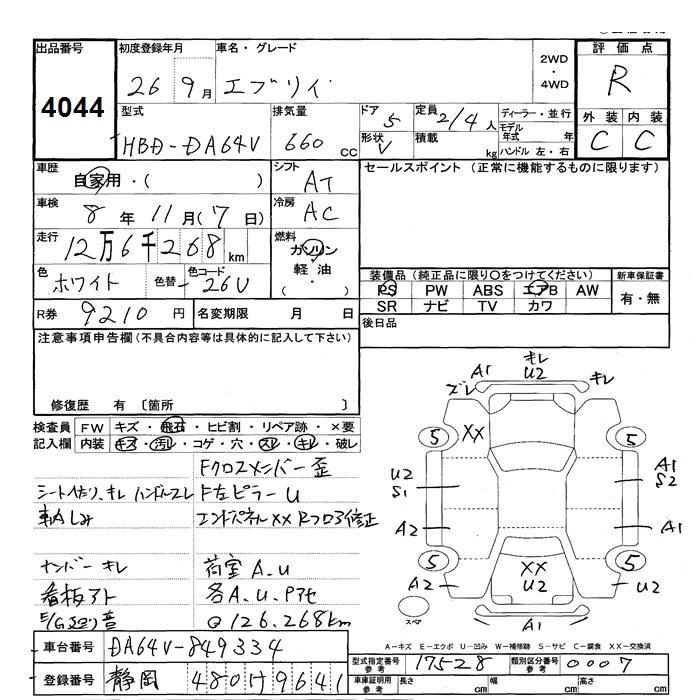 出品番号 4044
初度登録年月 26 9月
車名・グレード エブリイ
2WD・4WD
評価点 R
外装 内装 C C
型式 HBD-DA64V
排気量 660 cc
ドア 5
形状 V
定員 2/4人
積載 kg
ディーラー・並行
モデル年式 年
ハンドル 左・右
車歴 自家用・( )
シフト AT
セールスポイント (正常に機能するものに限ります)
車検 8年 11月(7日)
冷房 AC
走行 12万6千268km
燃料 ガソリン 軽油・( )
色 ホワイト 色替 - 色コード 26U
装備品 (純正品に限り○をつけてください) 新車保証書
PS PW ABS エアB AW 有・無
SR ナビ TV カワ
R券 9210円 名変期限 月 日
後日品
注意事項申告欄(不具合内容等は具体的に記入して下さい)
修復歴 有 〔箇所 〕
検査員記入欄
FW キズ・飛石・ヒビ割・リペア跡・×要
内装 キズ・汚レ・コゲ・穴・スレ・キレ・破レ
Fクロスメンバー歪
シートヘタリ、キレ ハンドルスレ F左ピラーU
エンドパネルXX Rフロア修正
ナンバーキレ 荷室A.U
看板アト 各A.U.Pアセ
E/G廻り音 ◎126.268km
車台番号 DA64V-849334
登録番号 静岡 480 け 9641
A1 キレ U2 キレ
ズレ
XX
5 5
U2 S1 A1 S2
A2 A1
5 5
A2 XX U2 U2
スペア A1
A-キズ E-エクボ U-凹み W-補修跡 S-サビ C-腐食 XX-交換済
型式指定番号 参考 17528 類別区分番号 参考 0007
車庫証明用 参考 長さ cm 幅 cm 高さ cm